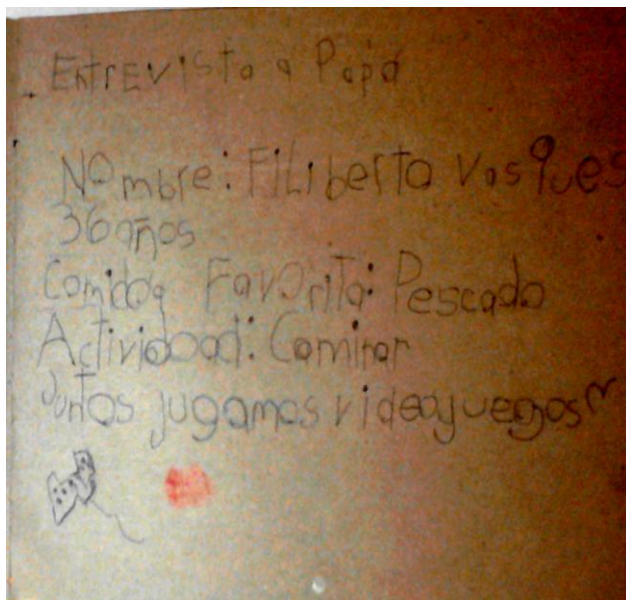 Entrevista a Papá
Nombre: Filiberto Vasques
36 años
Comida Favorita: Pescado
Actividad: Caminar
Juntos jugamos videojuegos